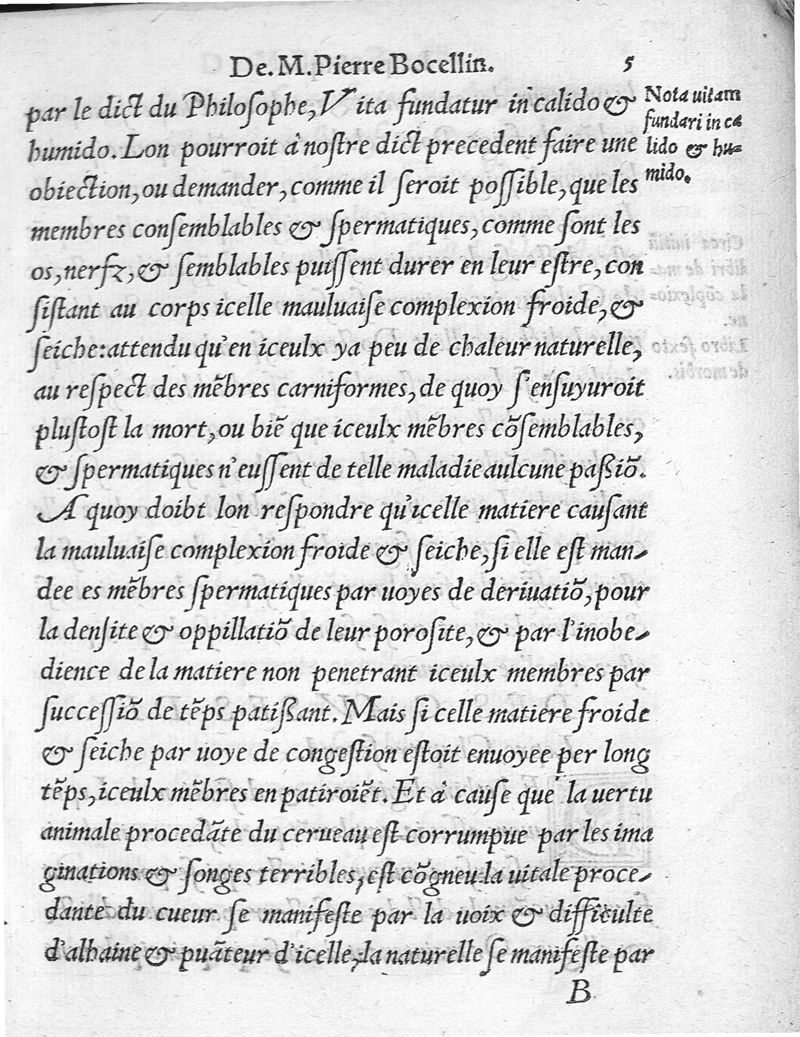 De. M. Pierre Bocellin. 5
par le dict du Philosophe, Vita fundatur in calido &
humido. Lon pourroit à nostre dict precedent faire une
obiection, ou demander, comme il seroit possible, que les
membres consemblables & spermatiques, comme sont les
os, nerfz, & semblables puissent durer en leur estre, con
sistant au corps icelle mauluaise complexion froide, &
seiche: attendu qu'en iceulx ya peu de chaleur naturelle,
au respect des mẽbres carniformes, de quoy s'ensuyuroit
plustost la mort, ou biẽ que iceulx mẽbres cõsemblables,
& spermatiques n'eussent de telle maladie aulcune paßiõ.
A quoy doibt lon respondre qu'icelle matiere causant
la mauluaise complexion froide & seiche, si elle est man-
dee es mẽbres spermatiques par uoyes de deriuatiõ, pour
la densite & oppillatiõ de leur porosite, & par l'inobe-
dience de la matiere non penetrant iceulx membres par
successiõ de tẽps patißant. Mais si celle matiere froide
& seiche par uoye de congestion estoit enuoyee per long
tẽps, iceulx mẽbres en patiroiẽt. Et à cause que la uertu
animale procedãte du cerueau est corrumpue par les ima
ginations & songes terribles, est cõgneu la uitale proce-
dante du cueur se manifeste par la uoix & difficulte
d'alhaine & puãteur d'icelle, la naturelle se manifeste par
B
Nota uitam
fundari in ca
lido & hu=
mido.